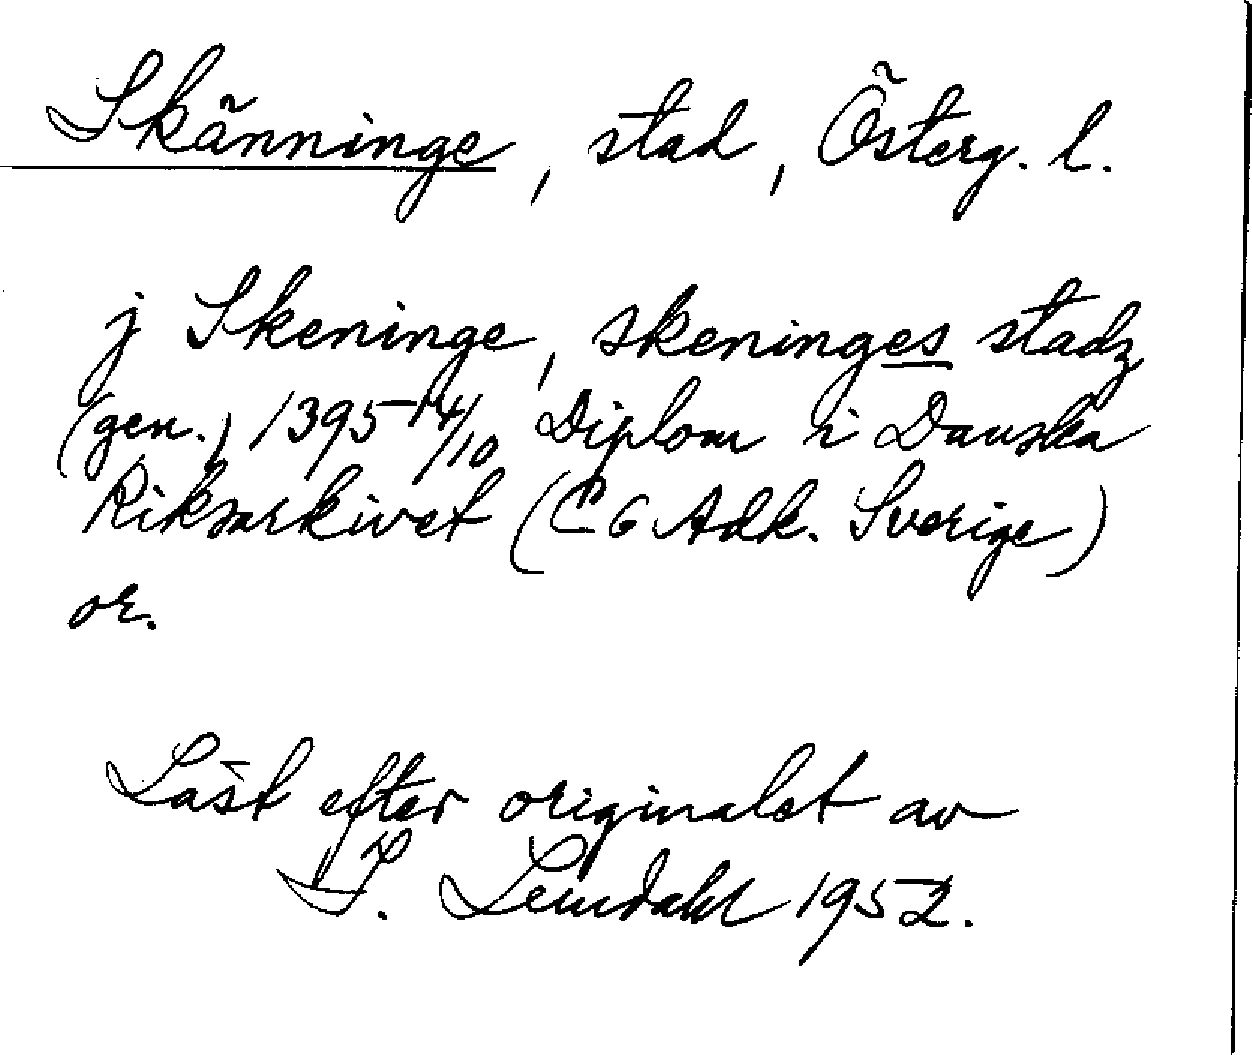 Skänninge, stad, Österg. l.
j Skeninge, skeninges stadz
(gen.) 1395 14/10 Diplom i Danska
Riksarkivet (C6 Adk. Sverige)
or.
Läst efter originalet av
Lemdahl 1952.